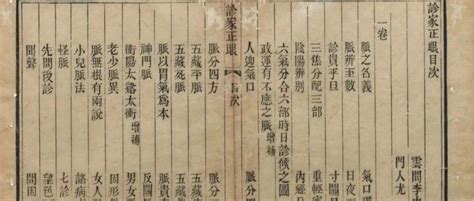 診家正眼目次
一卷 雲間李中
門人尤
脈之名義 氣口
脈辨至數 日夜
診貴平旦 寸關
三焦分配三部 重輕
陰陽辨別 內經
六氣分合六部時日診候之圖
政運有不應之脈 增補
人迎氣口 脈分
診家正眼 目次
脈分四方
五藏平脈 五藏
五藏死脈 五藏
脈以胃氣為本 脈貴
神門脈 反關
衝陽太谿太衝 增補 男女
老少脈異 因形
脈無根有兩說 女人
小兒脈法 諸病
怪脈 七診
先問後診 望色
聞聲 問因